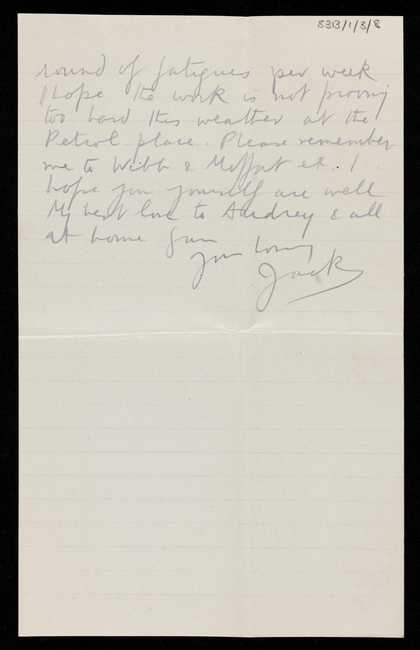 S3B/1/3/8
round of fatigues per week
I hope the work is not proving
too hard this weather at the
Petrol place. Please remember
me to Webb & Moffat etc. I
hope you yourself are well
My best love to Audrey & all
at home from
Your loving
Jack